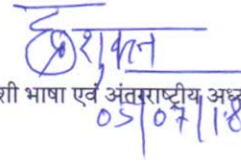 शुक्ल
शी भाषा एवं अंतरराष्ट्रीय अध्
05/07/18